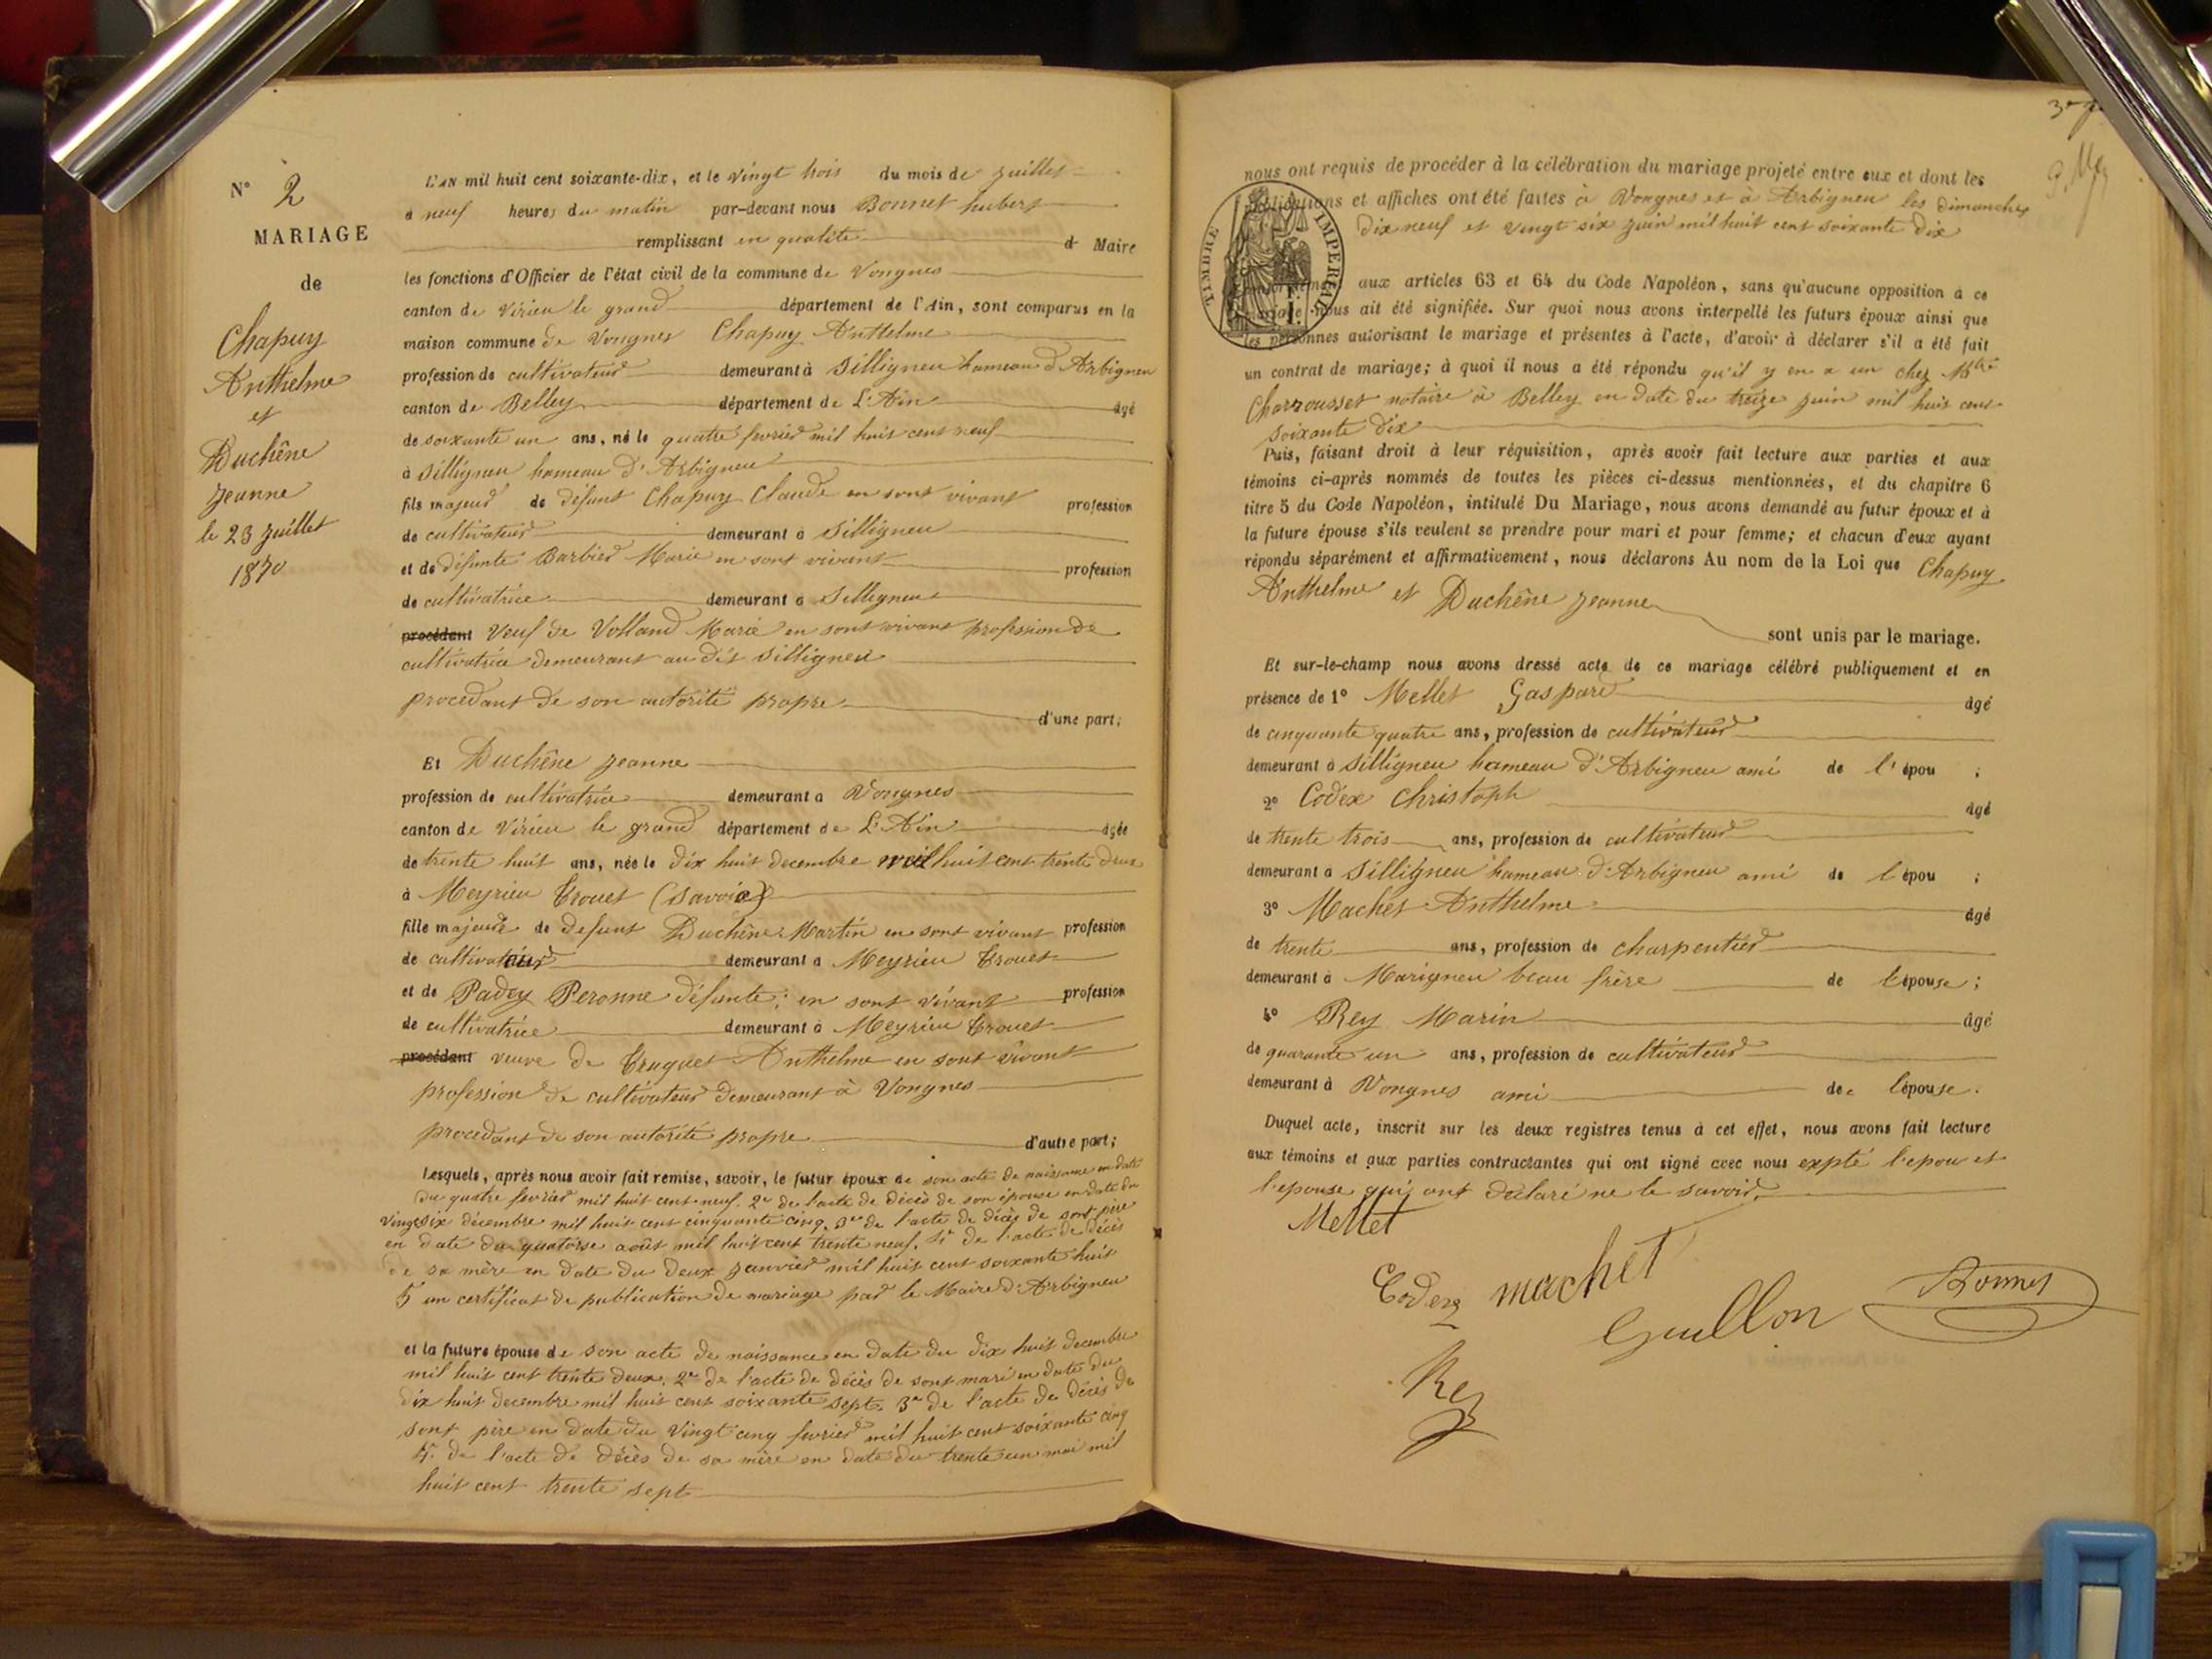 N° 2
MARIAGE
de
Chapuy
Anthelme
et
Duchêne
Jeanne
le 23 Juillet
1870
L'AN mil huit cent soixante-dix, et le vingt trois du mois de Juillet
à neuf heures du matin par-devant nous Bonnet hubert
remplissant en qualité d Maire
les fonctions d'Officier de l'état civil de la commune de Vongnes
canton de Virieu le grand département de l'Ain, sont comparus en la
maison commune de Vongnes Chapuy Anthelme
profession de cultivateur demeurant à Silligneu hameau d'Arbigneu
canton de Belley département de L'Ain âgé
de soixante un ans, né le quatre fevrier mil huit cent neuf
à Silligneu hameau d'Arbigneu
fils majeur de défunt Chapuy Claude en sont vivant profession
de cultivateur demeurant à Silligneu
et de défunte Barbier Marie en sont vivant profession
de cultivatrice demeurant à Silligneu
procédant Veuf de Volland Marie en sont vivant profession de
cultivatrice demeurant au dit Silligneu
procedant de son autorité propre d'une part;
Et Duchêne Jeanne
profession de cultivatrice demeurant à Vongnes
canton de Virieu le grand département de L'Ain âgée
de trente huit ans, née le dix huit decembre mil huit cent trente deux
à Meyrieu Trouet (Savoie)
fille majeure de defunt Duchêne Martin en sont vivant profession
de cultivateur demeurant à Meyrieu Trouet
et de Padey Peronne défunte; en sont vivant profession
de cultivatrice demeurant à Meyrieu Trouet
procédant veuve de Truguet Anthelme en sont vivant
profession de cultivateur demeurant à Vongnes
procedant de son autorité propre d'autre part;
Lesquels, après nous avoir fait remise, savoir, le futur époux de son acte de naissance en date
du quatre fevrier mil huit cent neuf. 2° de l'acte de décès de son épouse en date du
vingt six décembre mil huit cent cinquante cinq. 3° de l'acte de décès de sont père
en date du quatorse août mil huit cent trente neuf. 4° de l'acte de décès
de sa mère en date du deux janvier mil huit cent soixante huit
5 un certificat de publication de mariage par le Maire d'Arbigneu
et la future épouse de son acte de naissance en date du dix huit decembre
mil huit cent trente deux. 2° de l'acte de décès de sont mari en date du
dix huit decembre mil huit cent soixante sept. 3° de l'acte de décès de
sont père en date du vingt cinq fevrier mil huit cent soixante cinq
4° de l'acte de décès de sa mère en date du trente un mai mil
huit cent trente sept
nous ont requis de procéder à la célébration du mariage projeté entre eux et dont les
publications et affiches ont été faites à Vongnes et à Arbigneu les dimanches
dix neuf et vingt six juin mil huit cent soixante dix
TIMBRE IMPERIAL
aux articles 63 et 64 du Code Napoléon, sans qu'aucune opposition à ce
mariage nous ait été signifiée. Sur quoi nous avons interpellé les futurs époux ainsi que
les personnes autorisant le mariage et présentes à l'acte, d'avoir à déclarer s'il a été fait
un contrat de mariage; à quoi il nous a été répondu qu'il y en a un chez Mtre
notaire à Belley en date du treize juin mil huit cent
soixante dix
Puis, faisant droit à leur réquisition, après avoir fait lecture aux parties et aux
témoins ci-après nommés de toutes les pièces ci-dessus mentionnées, et du chapitre 6
titre 5 du Code Napoléon, intitulé Du Mariage, nous avons demandé au futur époux et à
la future épouse s'ils veulent se prendre pour mari et pour femme; et chacun d'eux ayant
répondu séparément et affirmativement, nous déclarons Au nom de la Loi que Chapuy
Anthelme et Duchêne Jeanne
sont unis par le mariage.
Et sur-le-champ nous avons dressé acte de ce mariage célébré publiquement et en
présence de 1° Mellet Gaspard âgé
de cinquante quatre ans, profession de cultivateur
demeurant à Silligneu hameau d'Arbigneu ami de l'épou ;
2° Codex Christoph âgé
de trente trois ans, profession de cultivateur
demeurant à Silligneu hameau d'Arbigneu ami de l'épou ;
3° Machet Anthelme âgé
de trente ans, profession de charpentier
demeurant à Marigneu beau frère de l'épouse;
4° Rey Marin âgé
de quarante un ans, profession de cultivateur
demeurant à Vongnes ami de l'épouse.
Duquel acte, inscrit sur les deux registres tenus à cet effet, nous avons fait lecture
aux témoins et aux parties contractantes qui ont signé avec nous expté l'epou et
l'epouse qui ont déclaré ne le savoir.
Mellet
Codex machet
Guillon Bonnet
Rey